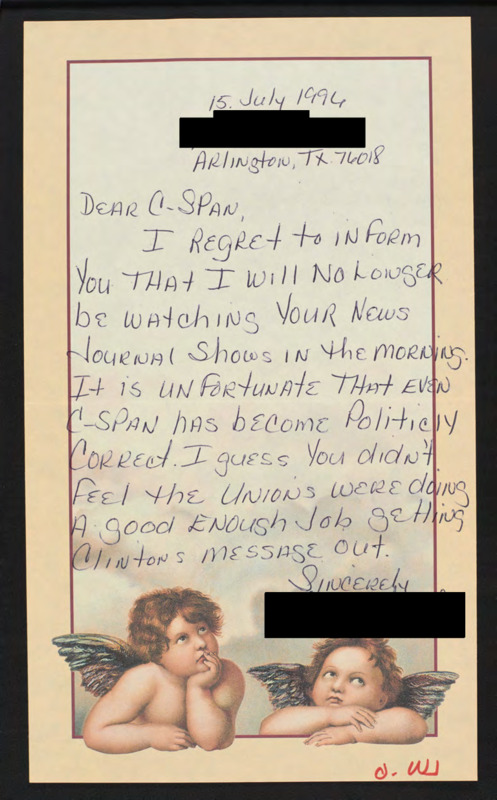 15. July 1996
ARlington, TX. 76018
DEAR C-SPAN,
I REGRET to INFORM
You THAT I will No LONGER
be WATCHING YOUR NEWS
JOURNAL Shows IN the MORNING.
It is UNFORTUNATE THAT EVEN
C-SPAN has bECOME Politicly
CORRECT. I guess You didn't
FEEl the UNIONS WERE doing
A good ENOUGH Job gEtting
Clintons MESSAGE out.
SINCERELY